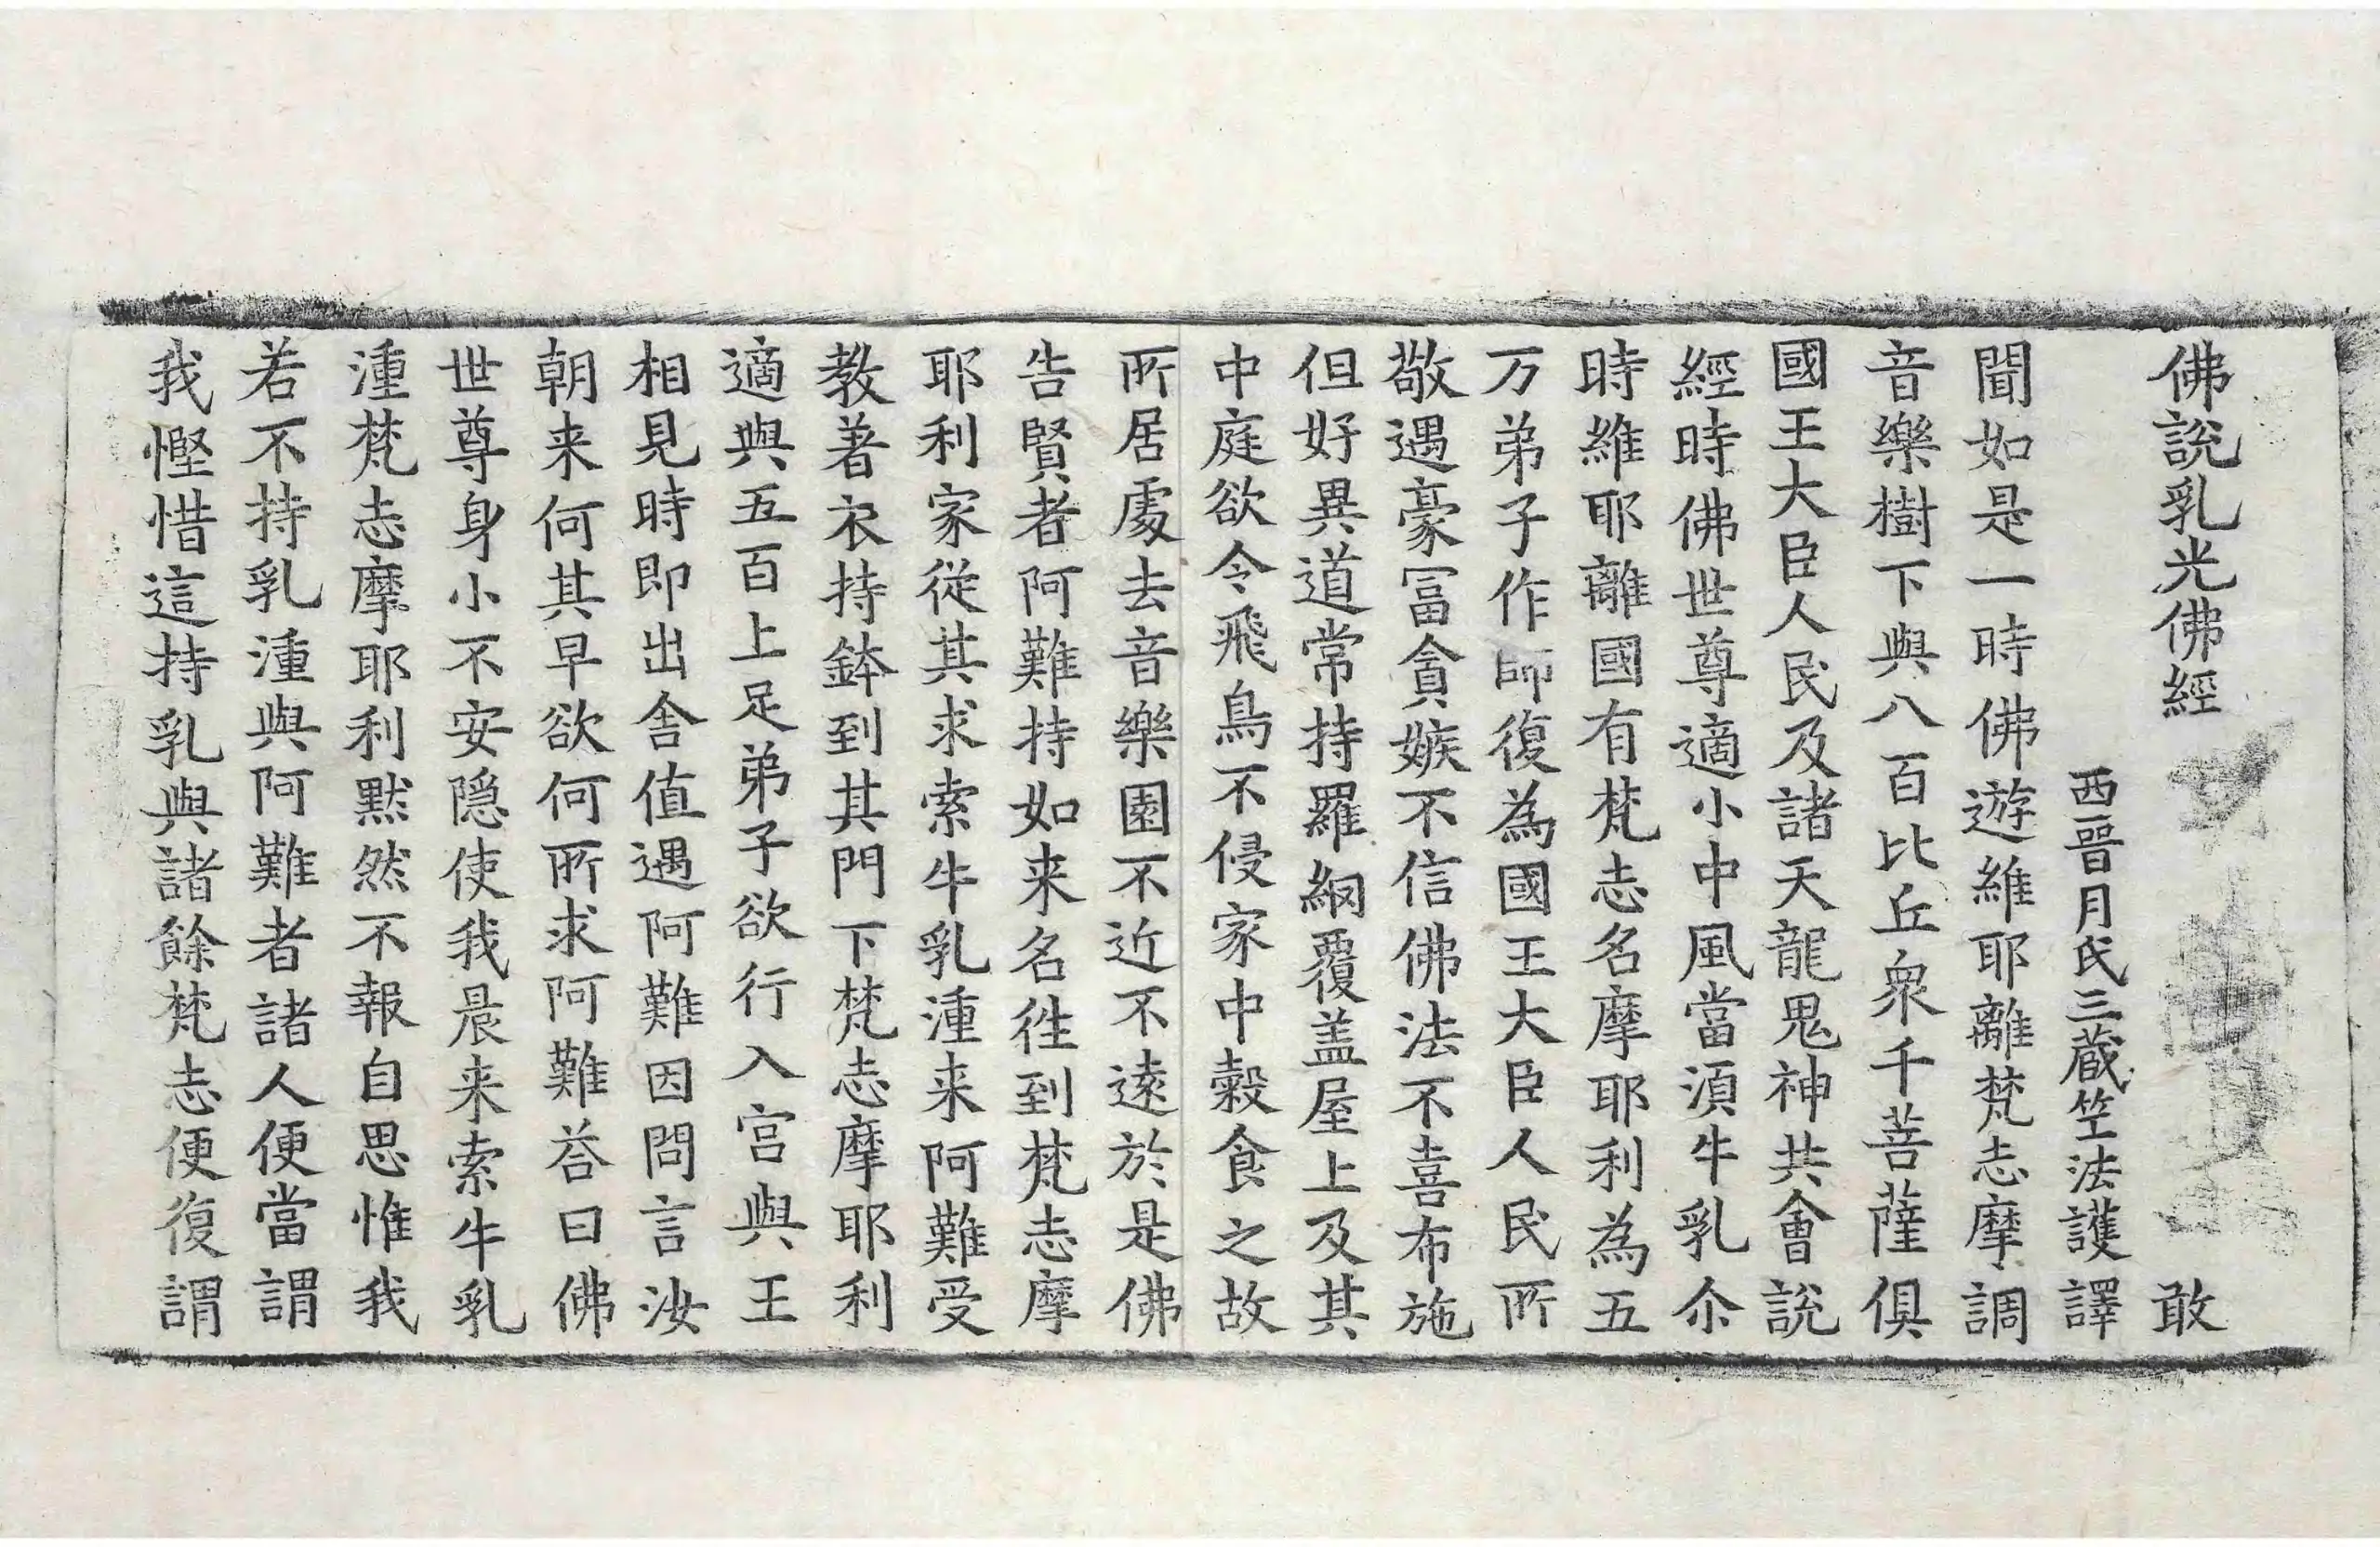 佛說乳光佛經 敢
西晉月氏三蔵竺法護譯
聞如是一時佛遊維耶離梵志摩調
音樂樹下與八百比丘衆千菩薩俱
國王大臣人民及諸天龍鬼神共會說
經時佛世尊適小中風當湏牛乳尒
時維耶離國有梵志名摩耶利為五
万弟子作師復為國王大臣人民所
敬遇豪冨貪嫉不信佛法不喜布施
但好異道常持羅網覆盖屋上及其
中庭欲令飛鳥不侵家中糓食之故
所居處去音樂園不近不遠於是佛
告賢者阿難持如来名徃到梵志摩
耶利家從其求索牛乳湩来阿難受
教著衣持鉢到其門下梵志摩耶利
適與五百上足弟子欲行入宫與王
相見時即出舎值遇阿難因問言汝
朝来何其早欲何所求阿難荅曰佛
世尊身小不安隠使我晨来索牛乳
湩梵志摩耶利默然不報自思惟我
若不持乳湩與阿難者諸人便當謂
我慳惜這持乳與諸餘梵志便復謂